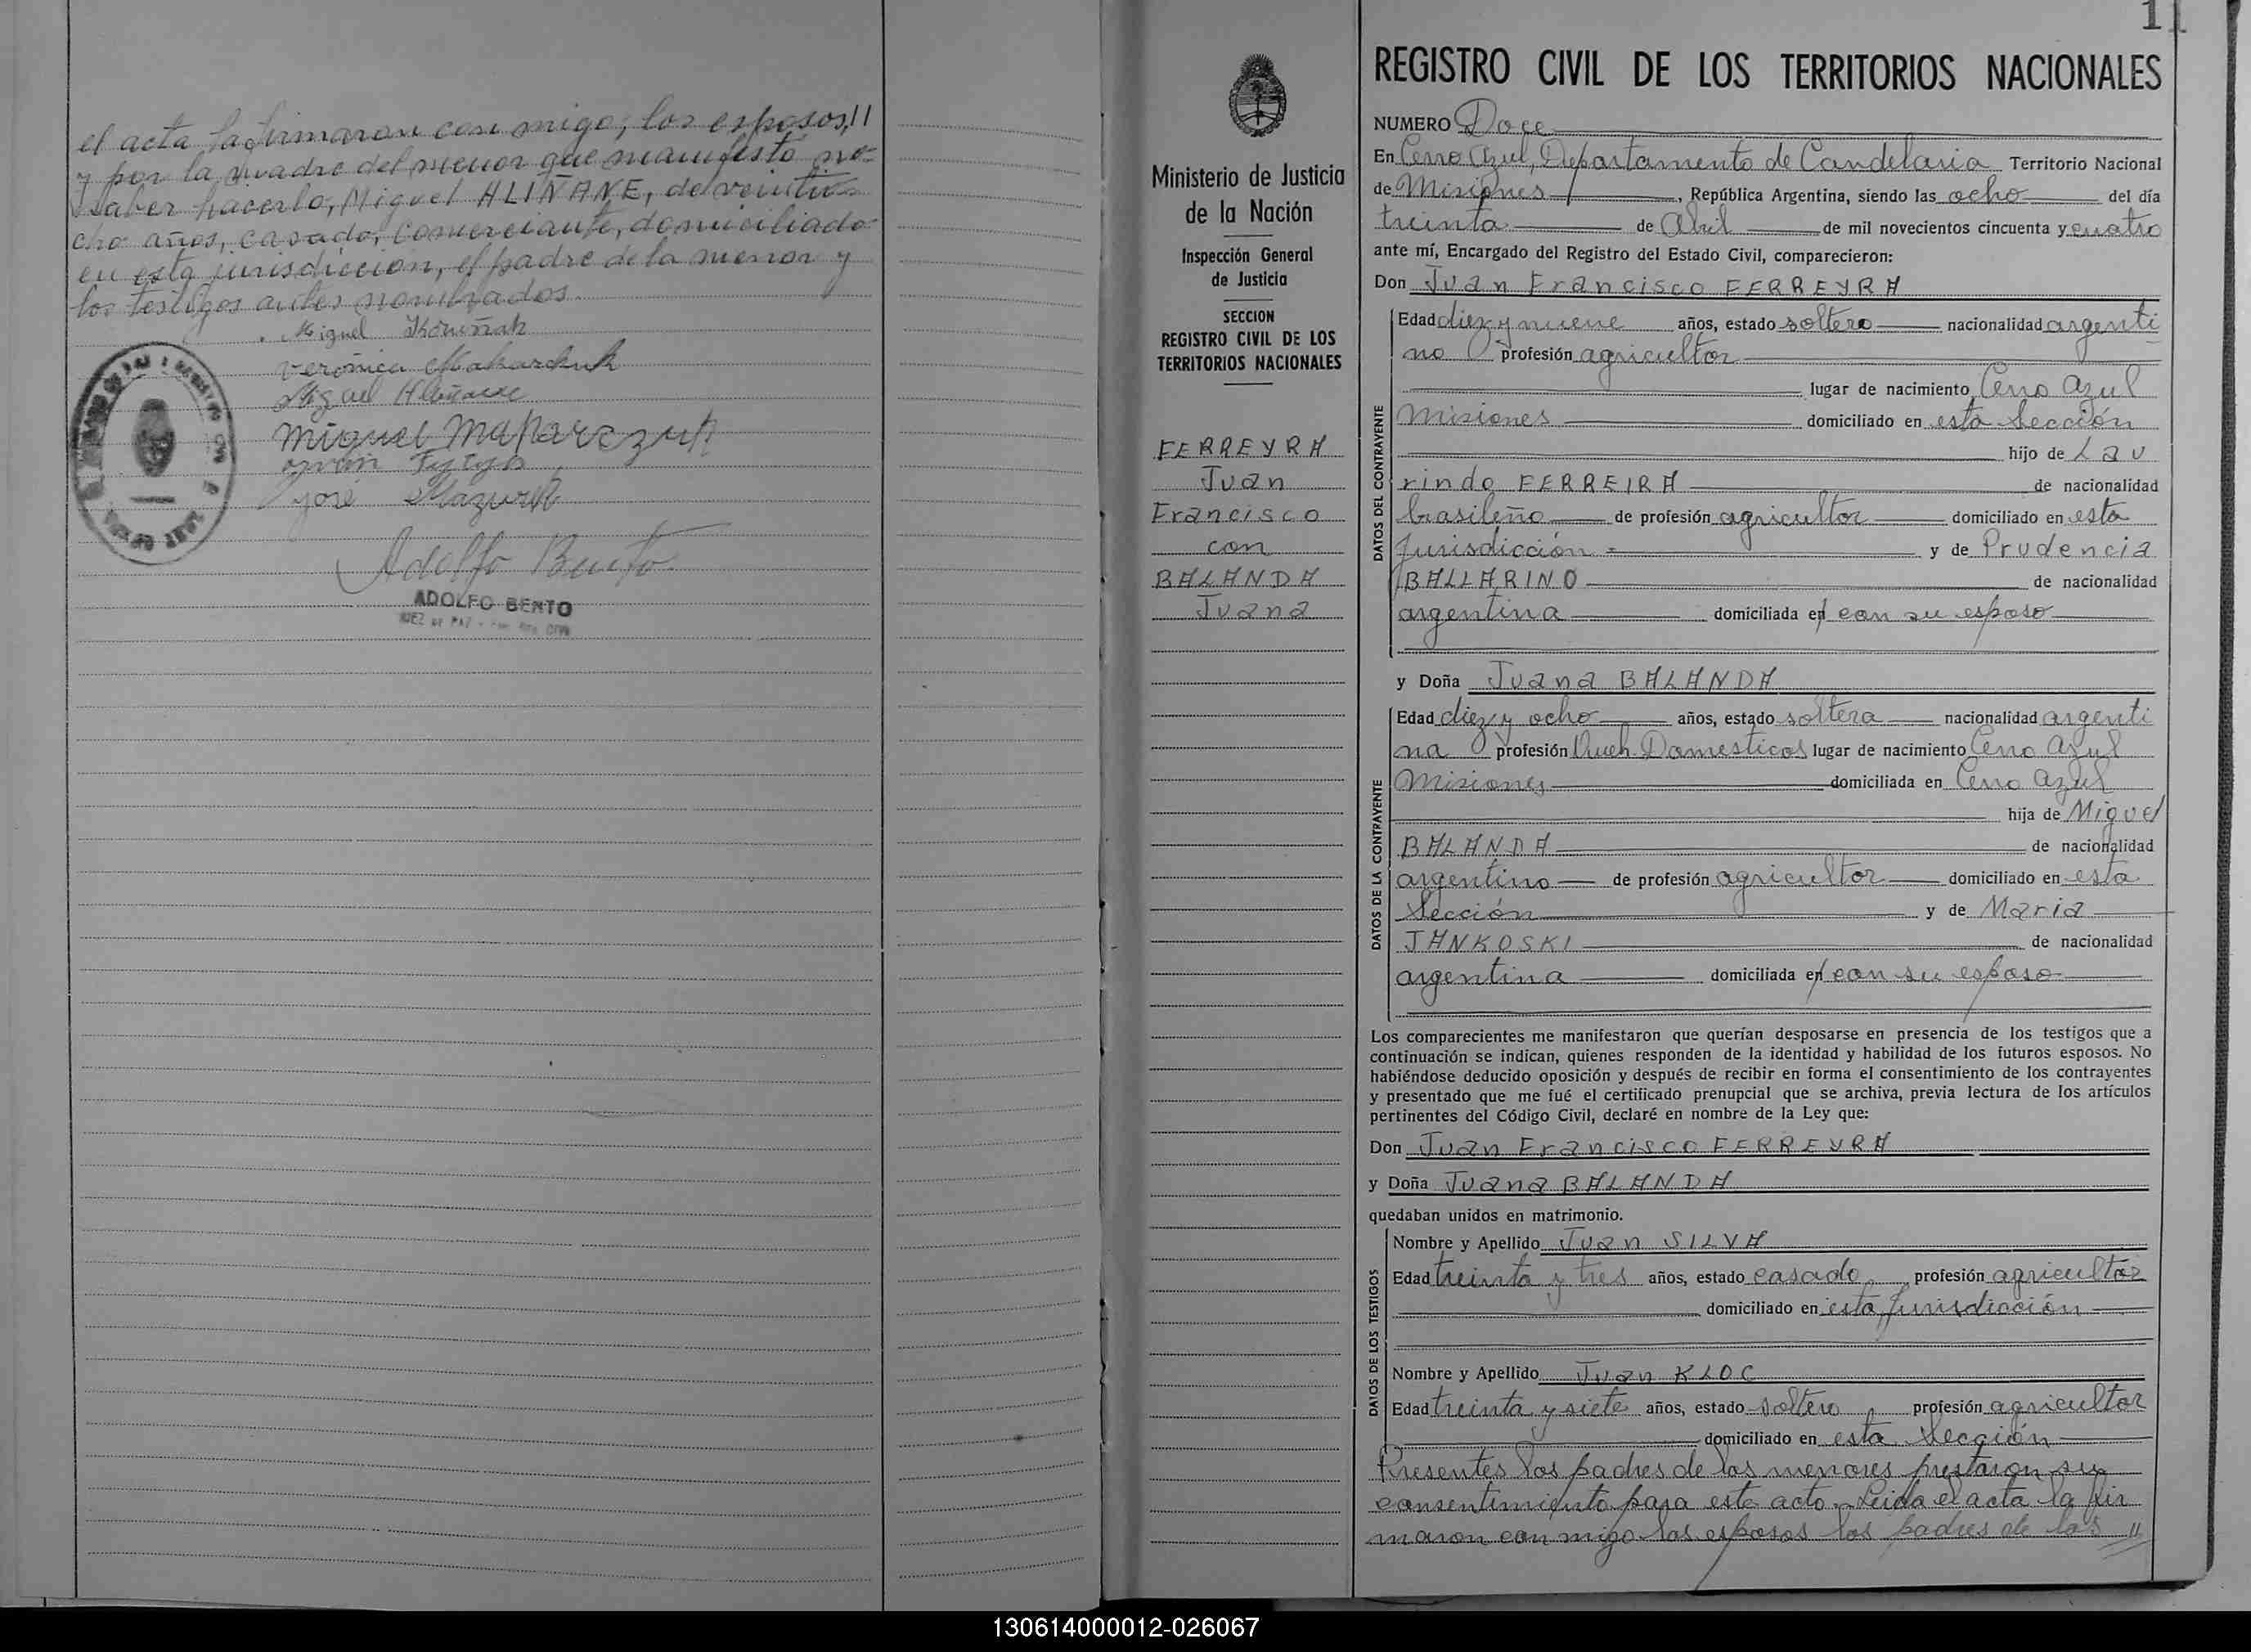 el acta la firmaron con migo, los esposos, //
y por la madre del menor que manifestó no=
saber hacerlo, Miguel ALIÑANE, de veintio=
cho años, casado, comerciante, domiciliado
en esta jurisdiccion, el padre de la menor y
los testigos antes nombrados.
Miguel
Verónica Maharchuk
Miguel Aliñane
Miguel
José Mazurk
Adolfo Bento
ADOLFO BENTO
JUEZ DE PAZ -
11
Ministerio de Justicia
de la Nación
Inspección General
de Justicia
SECCION
REGISTRO CIVIL DE LOS
TERRITORIOS NACIONALES
FERREYRA
Juan
Francisco
con
BALANDA
Juana
REGISTRO CIVIL DE LOS TERRITORIOS NACIONALES
NUMERO Doce
En Cerro Azul, Departamento de Candelaria Territorio Nacional
de Misiones, República Argentina, siendo las ocho del día
treinta de Abril de mil novecientos cincuenta y cuatro
ante mí, Encargado del Registro del Estado Civil, comparecieron:
Don Juan Francisco FERREYRA
DATOS DEL CONTRAYENTE
Edad diez y nueve años, estado soltero nacionalidad argenti
no profesión agricultor
lugar de nacimiento Cerro Azul
Misiones domiciliado en esta Sección
hijo de Lau
rindo FERREIRA de nacionalidad
brasileño de profesión agricultor domiciliado en esta
Jurisdicción y de Prudencia
BALLARINO de nacionalidad
argentina domiciliada en con su esposo
y Doña Juana BALANDA
DATOS DE LA CONTRAYENTE
Edad diez y ocho años, estado soltera nacionalidad argenti
na profesión Queh. Domesticos lugar de nacimiento Cerro Azul
Misiones domiciliada en Cerro Azul
hija de Miguel
BALANDA de nacionalidad
argentino de profesión agricultor domiciliado en esta
Sección y de Maria
JANKOSKI de nacionalidad
argentina domiciliada en con su esposo
Los comparecientes me manifestaron que querían desposarse en presencia de los testigos que a
continuación se indican, quienes responden de la identidad y habilidad de los futuros esposos. No
habiéndose deducido oposición y después de recibir en forma el consentimiento de los contrayentes
y presentado que me fué el certificado prenupcial que se archiva, previa lectura de los artículos
pertinentes del Código Civil, declaré en nombre de la Ley que:
Don Juan Francisco FERREYRA
y Doña Juana BALANDA
quedaban unidos en matrimonio.
DATOS DE LOS TESTIGOS
Nombre y Apellido Juan SILVA
Edad treinta y tres años, estado casado profesión agricultor
domiciliado en esta Jurisdicción
Nombre y Apellido Juan KLOC
Edad treinta y siete años, estado soltero profesión agricultor
domiciliado en esta Sección
Presentes los padres de los menores prestaron su
consentimiento para este acto. Leida el acta la fir
maron con migo los esposos los padres de los //
130614000012-026067